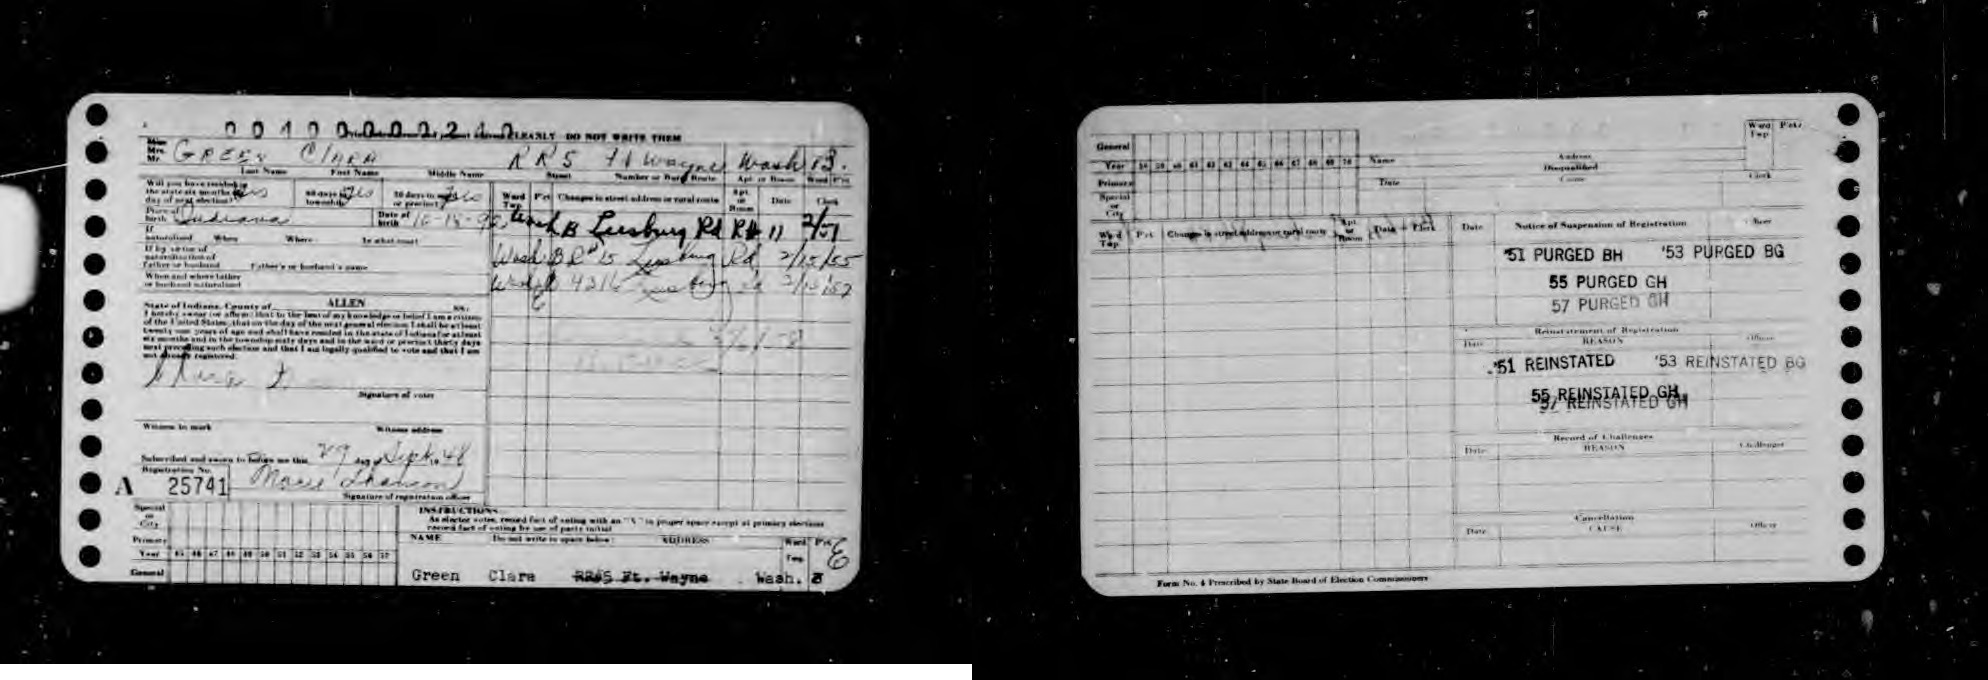 CLEARLY DO NOT WRITE THEM
Miss
Mrs.
Mr. GREEN Clara RR5 Ft Wayne Wash B.
Last Name First Name Middle Name Street Number or Rural Route Apt or Room Ward Pct.
Will you have resided in
the state six months Yes 60 days in township Yes 30 days in or precinct Yes
day of next election?
Ward Twp Pct Changes in street address or rural route Apt. or Room Date Clerk
Place of birth Indiana Date of birth
Wash B Leesburg Rd RR 11 2/51
If naturalized When Where In what court
If by virtue of
naturalization of
Father or husband Father's or husband's name
Wash B R# 15 Leesburg Rd 2/15/55
When and where father
or husband naturalized
4216 Leesburg Rd
State of Indiana, County of ALLEN SS:
I hereby swear (or affirm) that to the best of my knowledge or belief I am a citizen
of the United States, that on the day of the next general election I shall be at least
twenty one years of age and shall have resided in the state of Indiana for at least
six months and in the township sixty days and in the ward or precinct thirty days
next preceding such election and that I am legally qualified to vote and that I am
not already registered.
Clara
Signature of voter
Witness to mark Witness address
Subscribed and sworn to before me this 29 day of Sept. 19 48
Registration No.
A 25741
Signature of registration officer
Special
or
City
Primary
Year 45 46 47 48 49 50 51 52 53 54 55 56 57
General
INSTRUCTIONS
As elector votes, record fact of voting with an "X" in proper space except at primary elections
record fact of voting by use of party initial
NAME Do not write in space below: ADDRESS Ward Twp. Pct.
E
Green Clara RR#5 Ft. Wayne Wash. B
General
Year 58 59 60 61 62 63 64 65 66 67 68 69 70
Primary
Special
or
City
Name Address Ward Twp Pct.
Disqualified
Date Cause Clerk
Ward Twp Pct. Changes in street address or rural route Apt or Room Date Clerk
Date Notice of Suspension of Registration Officer
'51 PURGED BH '53 PURGED BG
55 PURGED GH
57 PURGED GH
Reinstatement of Registration
Date REASON Officer
'51 REINSTATED '53 REINSTATED BG
55 REINSTATED GH
57 REINSTATED GH
Record of Challenges
Date REASON Challenger
Cancellation
Date CAUSE Officer
Form No. 4 Prescribed by State Board of Election Commissioners